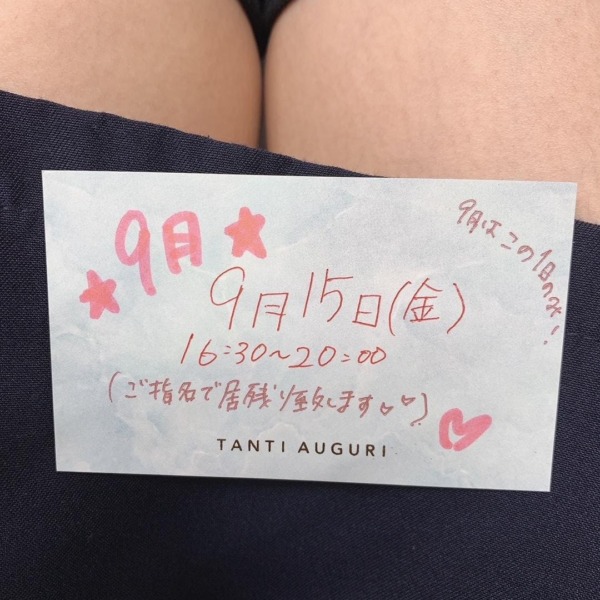 9月
9月はこの1日のみ!
9月15日(金)
16:30~20:00
(ご指名で居残り致します♡♡)
TANTI AUGURI